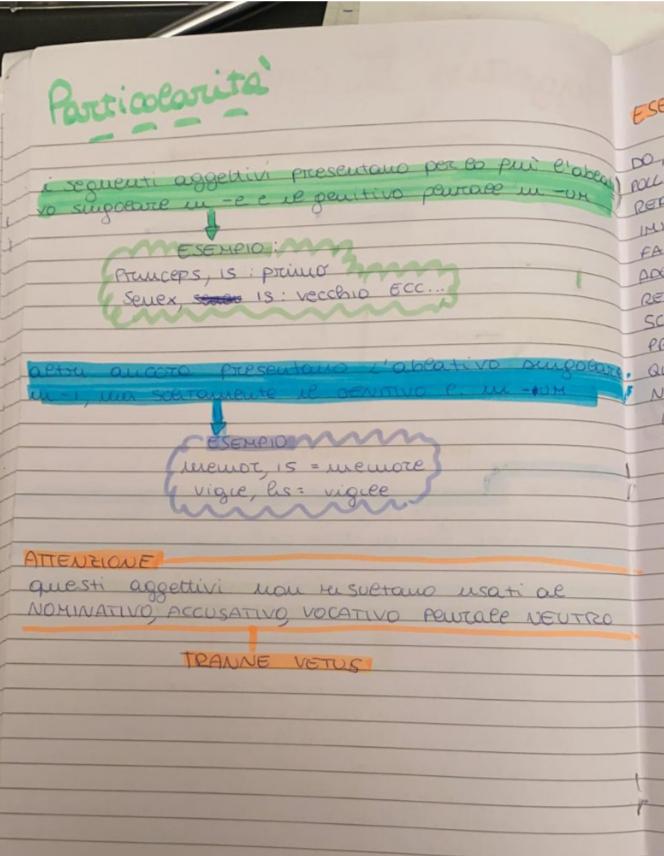 Particolarità
i seguenti aggettivi presentano per lo più l'ablati
vo singolare in -e e il genitivo plurale in -um
ESEMPIO:
Princeps, is : primo
Senex, is : vecchio ECC...
altri ancora presentano l'ablativo singolare
in -i, ma solitamente il GENITIVO è in -um
ESEMPIO
memor, is = memore
vigil, lis = vigile
ATTENZIONE
questi aggettivi non risultano usati al
NOMINATIVO, ACCUSATIVO, VOCATIVO PLURALE NEUTRO
TRANNE VETUS
ESE
DO
POLL
RE
IM
FA
RE
SC
PR
QU
N